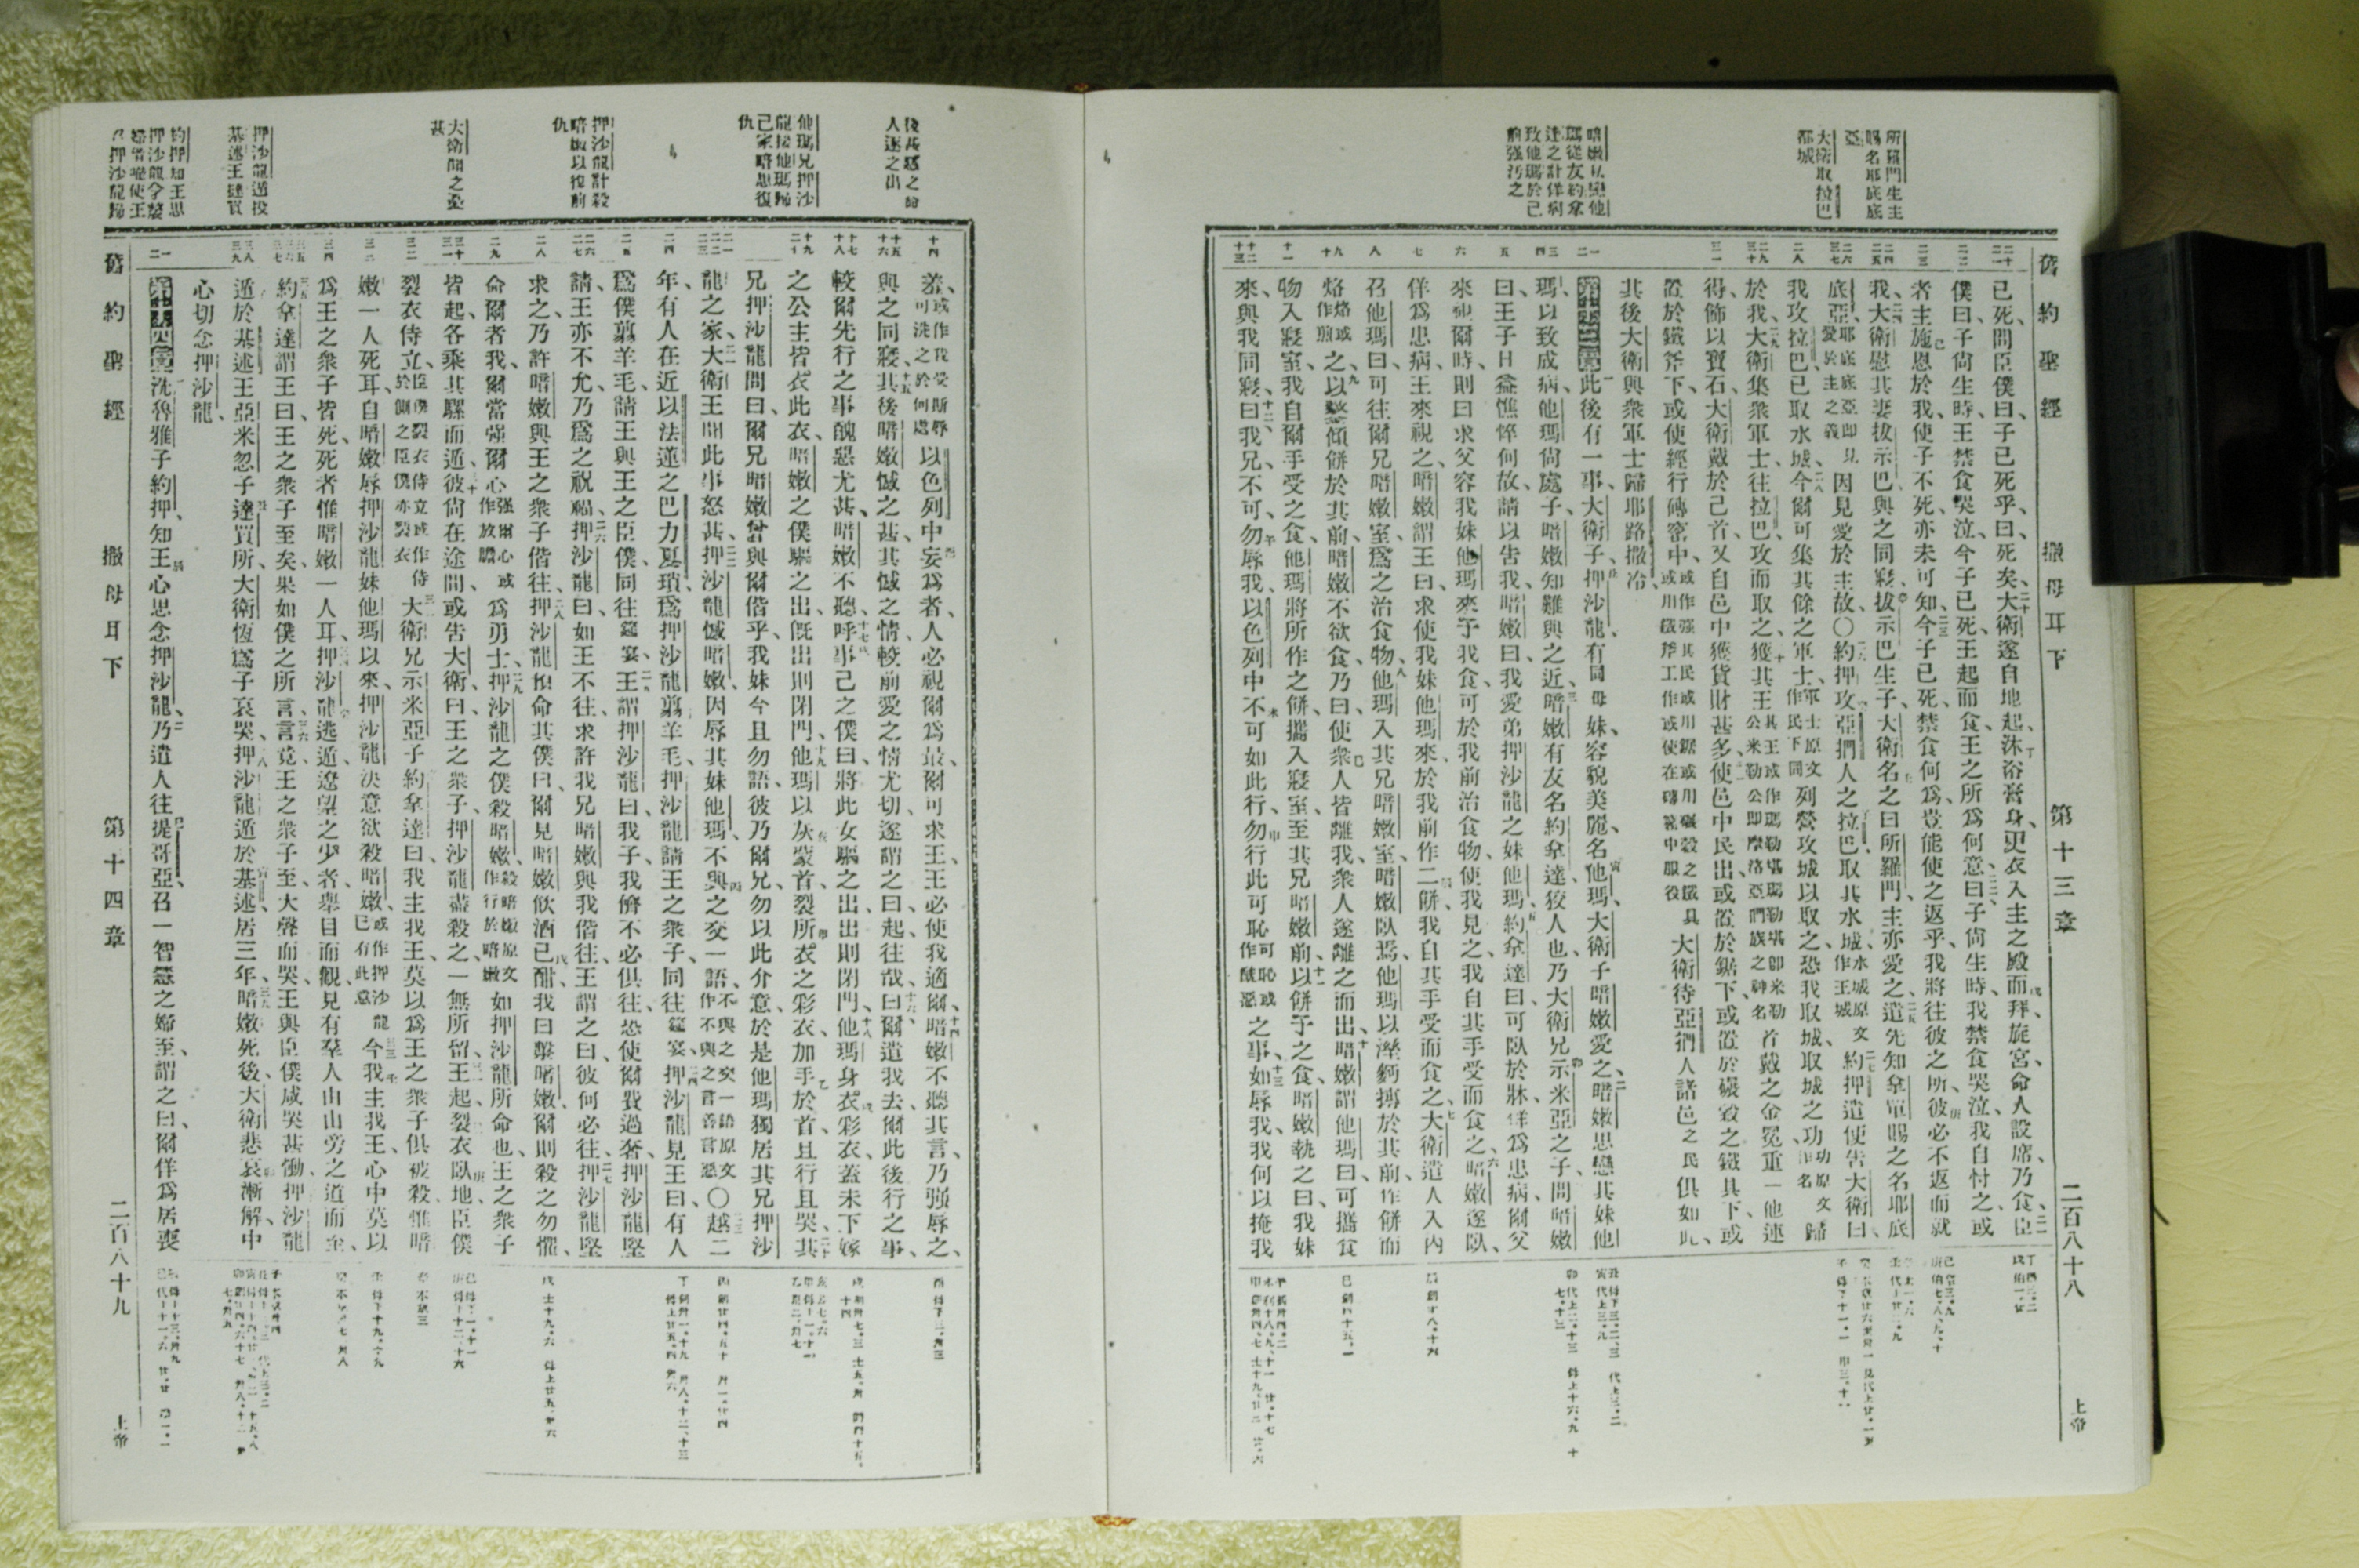 舊約聖經 撒母耳下 第十三章 二百八十八 上帝
所羅門生主
賜名耶底底
亞
大衛取拉巴
都城
己死問臣僕曰子已死乎曰死矣大衛遂自地起沐浴膏身更衣入主之殿而拜旋宮命人設席乃食臣
僕曰子尙生時王禁食哭泣今子已死王起而食王之所爲何意曰子尙生時我禁食哭泣我自忖之或
者主施恩於我使子不死亦未可知今子已死禁食何爲豈能使之返乎我將往彼之所彼必不返而就
我大衛慰其妻拔示巴與之同寢拔示巴生子大衛名之曰所羅門主亦愛之遣先知拿單賜之名耶底
底亞耶底底亞卽見愛於主之義因見愛於主故〇約押攻亞捫人之拉巴取其水城水城原文作王城約押遣使告大衛曰
我攻拉巴已取水城今爾可集其餘之軍士軍士原文作民下同列營攻城以取之恐我取城取城之功功原文作名歸
於我大衛集衆軍士往拉巴攻而取之獲其王其王或作瑪勒堪瑪勒堪卽米勒公米勒公卽摩洛亞捫族之神名首戴之金冕重一他連
得飾以寶石大衛戴於己首又自邑中獲貨財甚多使邑中民出或置於鋸下或置於碾穀之鐵具下或
置於鐵斧下或使經行磚窰中或作强其民或用鋸或用碾穀之鐵具或用鐵斧工作或使在磚窰中服役大衛待亞捫人諸邑之民俱如此
其後大衛與衆軍士歸耶路撒冷
暗嫩私戀他
瑪從友約拿
達之計佯病
致他瑪於己
前强污之
第十三章此後有一事大衛子押沙龍有同母妹容貌美麗名他瑪大衛子暗嫩愛之暗嫩思戀其妹他
瑪以致成病他瑪尙處子暗嫩知難與之近暗嫩有友名約拿達狡人也乃大衛兄示米亞之子問暗嫩
曰王子日益憔悴何故請以告我暗嫩曰我愛弟押沙龍之妹他瑪約拿達曰可臥於牀佯爲患病爾父
來視爾時則曰求父容我妹他瑪來予我食可於我前治食物使我見之我自其手受而食之暗嫩遂臥
佯爲患病王來視之暗嫩謂王曰求使我妹他瑪來於我前作二餅我自其手受而食之大衛遣人入內
召他瑪曰可往爾兄暗嫩室爲之治食物他瑪入其兄暗嫩室暗嫩臥焉他瑪以溼麪摶於其前作餅而
烙烙或作煎之以盤傾餅於其前暗嫩不欲食乃曰使衆人皆離我衆人遂離之而出暗嫩謂他瑪曰可攜食
物入寢室我自爾手受之食他瑪將所作之餅攜入寢室至其兄暗嫩前以餅予之食暗嫩執之曰我妹
來與我同寢曰我兄不可勿辱我以色列中不可如此行勿行此可恥可恥或作醜惡之事如辱我我何以掩我
後甚憾之命
人逐之出
他瑪兄押沙
龍接他瑪歸
己家暗思復
仇
押沙龍計殺
暗嫩以復前
仇
大衛聞之憂
甚
押沙龍逃投
基述王達買
約押知王思
押沙龍令慧
婦諷使王
召押沙龍歸
羞或作我受斯辱可洗之於何處以色列中妄爲者人必視爾爲最爾可求王王必使我適爾暗嫩不聽其言乃强辱之
與之同寢其後暗嫩憾之甚其憾之情較前愛之情尤切遂謂之曰起往哉曰爾遣我去爾此後行之事
較爾先行之事醜惡尤甚暗嫩不聽呼事己之僕曰將此女驅之出出則閉門他瑪身衣彩衣蓋未下嫁
之公主皆衣此衣暗嫩之僕驅之出旣出則閉門他瑪以灰蒙首裂所衣之彩衣加手於首且行且哭其
兄押沙龍問曰爾兄暗嫩曾與爾偕乎我妹今且勿語彼乃爾兄勿以此介意於是他瑪獨居其兄押沙
龍之家大衛王聞此事怒甚押沙龍憾暗嫩因辱其妹他瑪不與之交一語不與之交一語原文作不與之言善言惡〇越二
年有人在近以法蓮之巴力夏瑣爲押沙龍翦羊毛押沙龍請王之衆子同往筵宴押沙龍見王曰有人
爲僕翦羊毛請王與王之臣僕同往筵宴王謂押沙龍曰我子我儕不必俱往恐使爾費過奢押沙龍堅
請王亦不允乃爲之祝福押沙龍曰如王不往求許我兄暗嫩與我偕往王謂之曰彼何必往押沙龍堅
求之乃許暗嫩與王之衆子偕往押沙龍預命其僕曰爾見暗嫩飮酒已酣我曰擊暗嫩爾則殺之勿懼
命爾者我爾當强爾心强爾心或作放膽爲勇士押沙龍之僕殺暗嫩殺暗嫩原文作行於暗嫩如押沙龍所命也王之衆子
皆起各乘其騾而遁彼尙在途間或告大衛曰王之衆子押沙龍盡殺之一無所留王起裂衣臥地臣僕
裂衣侍立臣僕裂衣侍立或作侍於側之臣僕亦裂衣大衛兄示米亞子約拿達曰我主我王莫以爲王之衆子俱被殺惟暗
嫩一人死耳自暗嫩辱押沙龍妹他瑪以來押沙龍決意欲殺暗嫩或作押沙龍已有此意今我主我王心中莫以
爲王之衆子皆死死者惟暗嫩一人耳押沙龍逃遁遼望之少者舉目而觀見有羣人由山旁之道而至
約拿達謂王曰王之衆子至矣果如僕之所言言竟王之衆子至大聲而哭王與臣僕咸哭甚慟押沙龍
遁於基述王亞米忽子達買所大衛恆爲子哀哭押沙龍遁於基述居三年暗嫩死後大衛悲哀漸解中
心切念押沙龍
第十四章洗魯雅子約押知王心思念押沙龍乃遣人往提哥亞召一智慧之婦至謂之曰爾佯爲居喪
舊約聖經 撒母耳下 第十四章 二百八十九 上帝